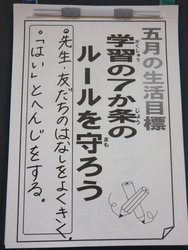 五月の生活目標
学習の7か条の
ルールを守ろう
・先生・友だちのはなしをよくきく。
・「はい」とへんじをする。